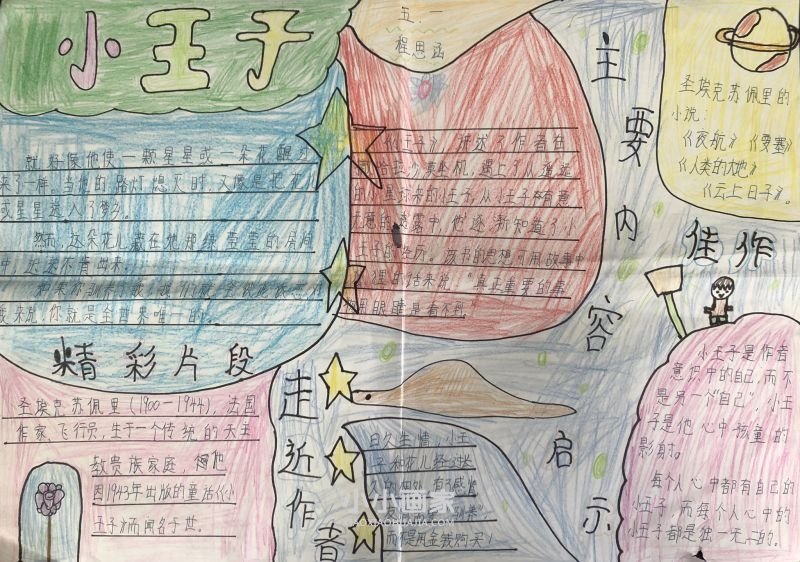 小王子
五.一
程思函
就好像他使一颗星星或一朵花醒过
来了一样。当他的路灯熄灭时,又像是把花儿
或星星送入了梦乡。
然而,这朵花儿藏在她那绿莹莹的房间
中,迟迟不肯出来。
要来说,你就是全世界唯一的。
精彩片段
《小王子》讲述了作者在
的小王子,从小王子有意
无意的透露中,他逐渐知道了小
王子的经历。该书的思想可用故事中
狸的话来说:“真正重要的事
用眼睛是看不到”
主要内容
圣埃克苏佩里的
小说:
《夜航》《要塞》
《人类的大地》
《云上日子》。
佳作
圣埃克苏佩里(1900—1944),法国
作家、飞行员,生于一个传统的天主
教贵族家庭,他
因1943年出版的童话《小
王子》而闻名于世。
走近作者
日久生情,小王
子和花儿经过长
而不是用金钱购买!
启示
小王子是作者
意识中的自己,而不
是另一个“自己”,小王
子是他心中孩童的
影射。
每个人心中都有自己的
小王子,而每个人心中的
小王子都是独一无二的。
小小画家